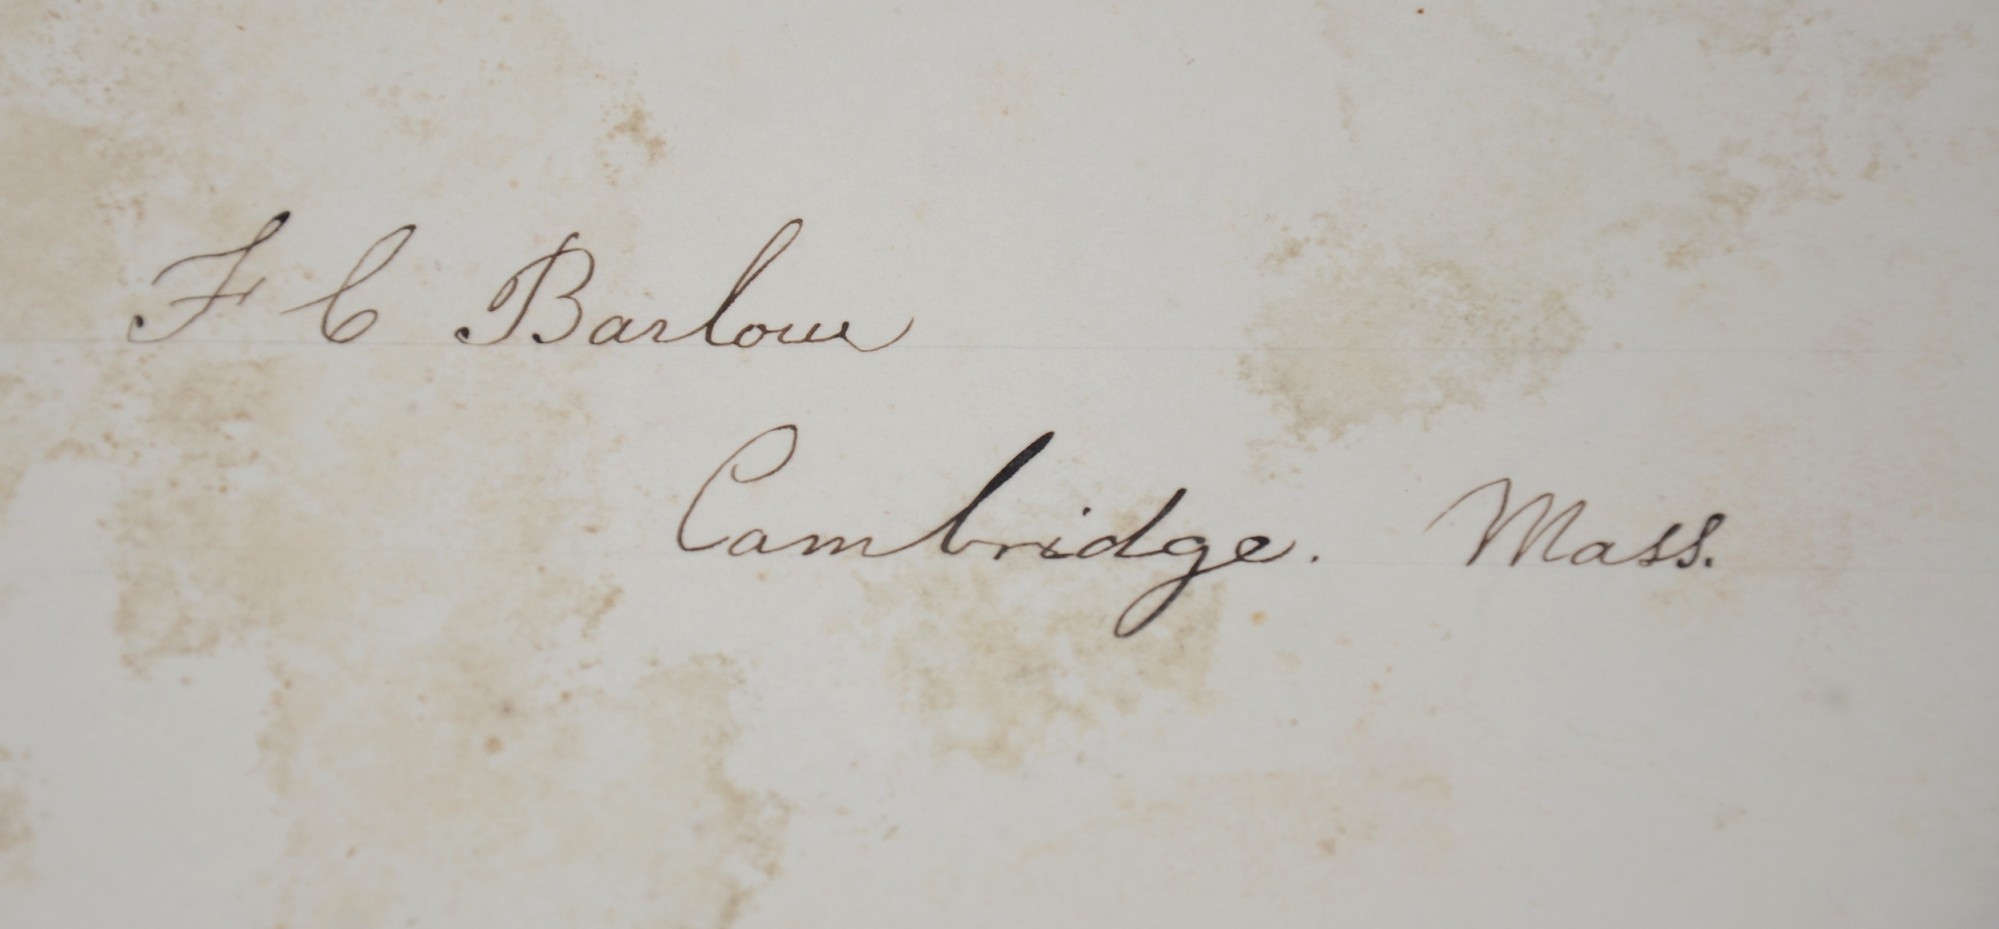 F C Barlow
Cambridge. Mass.